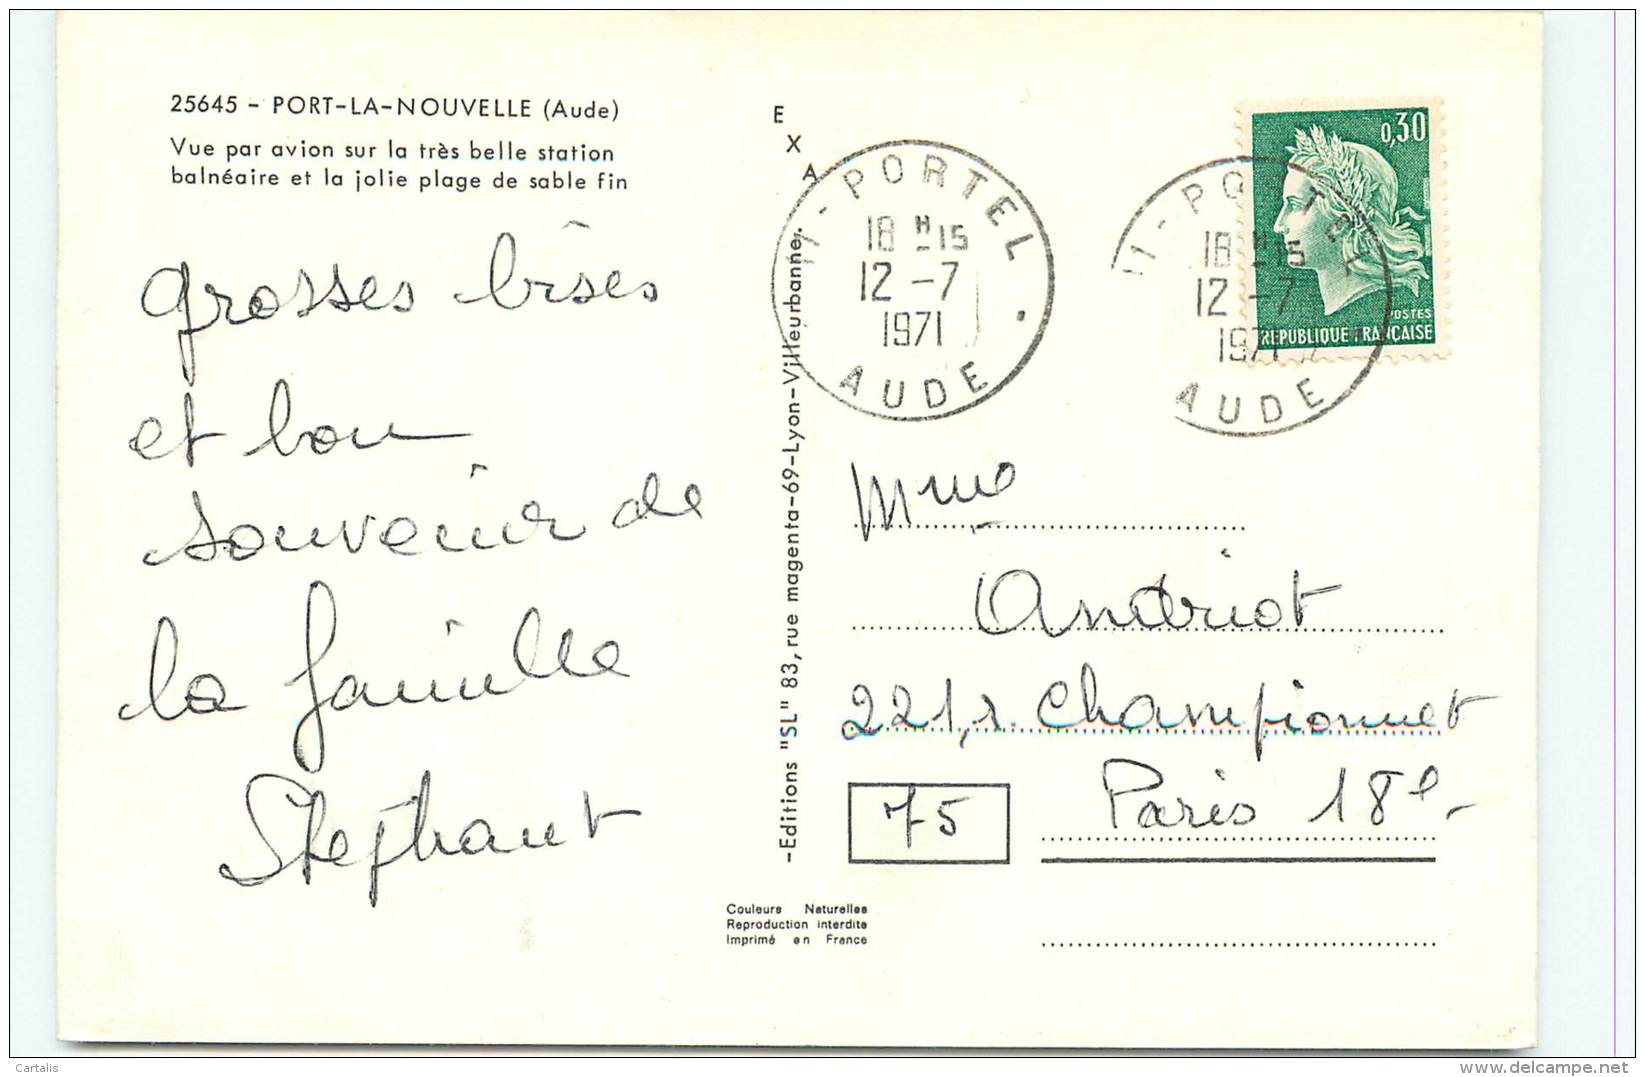 25645 - PORT-LA-NOUVELLE (Aude)
Vue par avion sur la très belle station
balnéaire et la jolie plage de sable fin
grosses bises
et bon
souvenir de
la famille
Stephant
EXA
-Editions "SL" 83, rue magenta-69-Lyon-Villeurbanne.
Couleurs Naturelles
Reproduction interdite
Imprimé en France
11-PORTEL
18H15
12-7
1971
AUDE
11-PORTEL
18H15
12-7
1971
AUDE
0,30
POSTES
REPUBLIQUE FRANÇAISE
Mme
Andriot
221, r. Championnet
Paris 18e-
75
Cartalis
delcampe.net